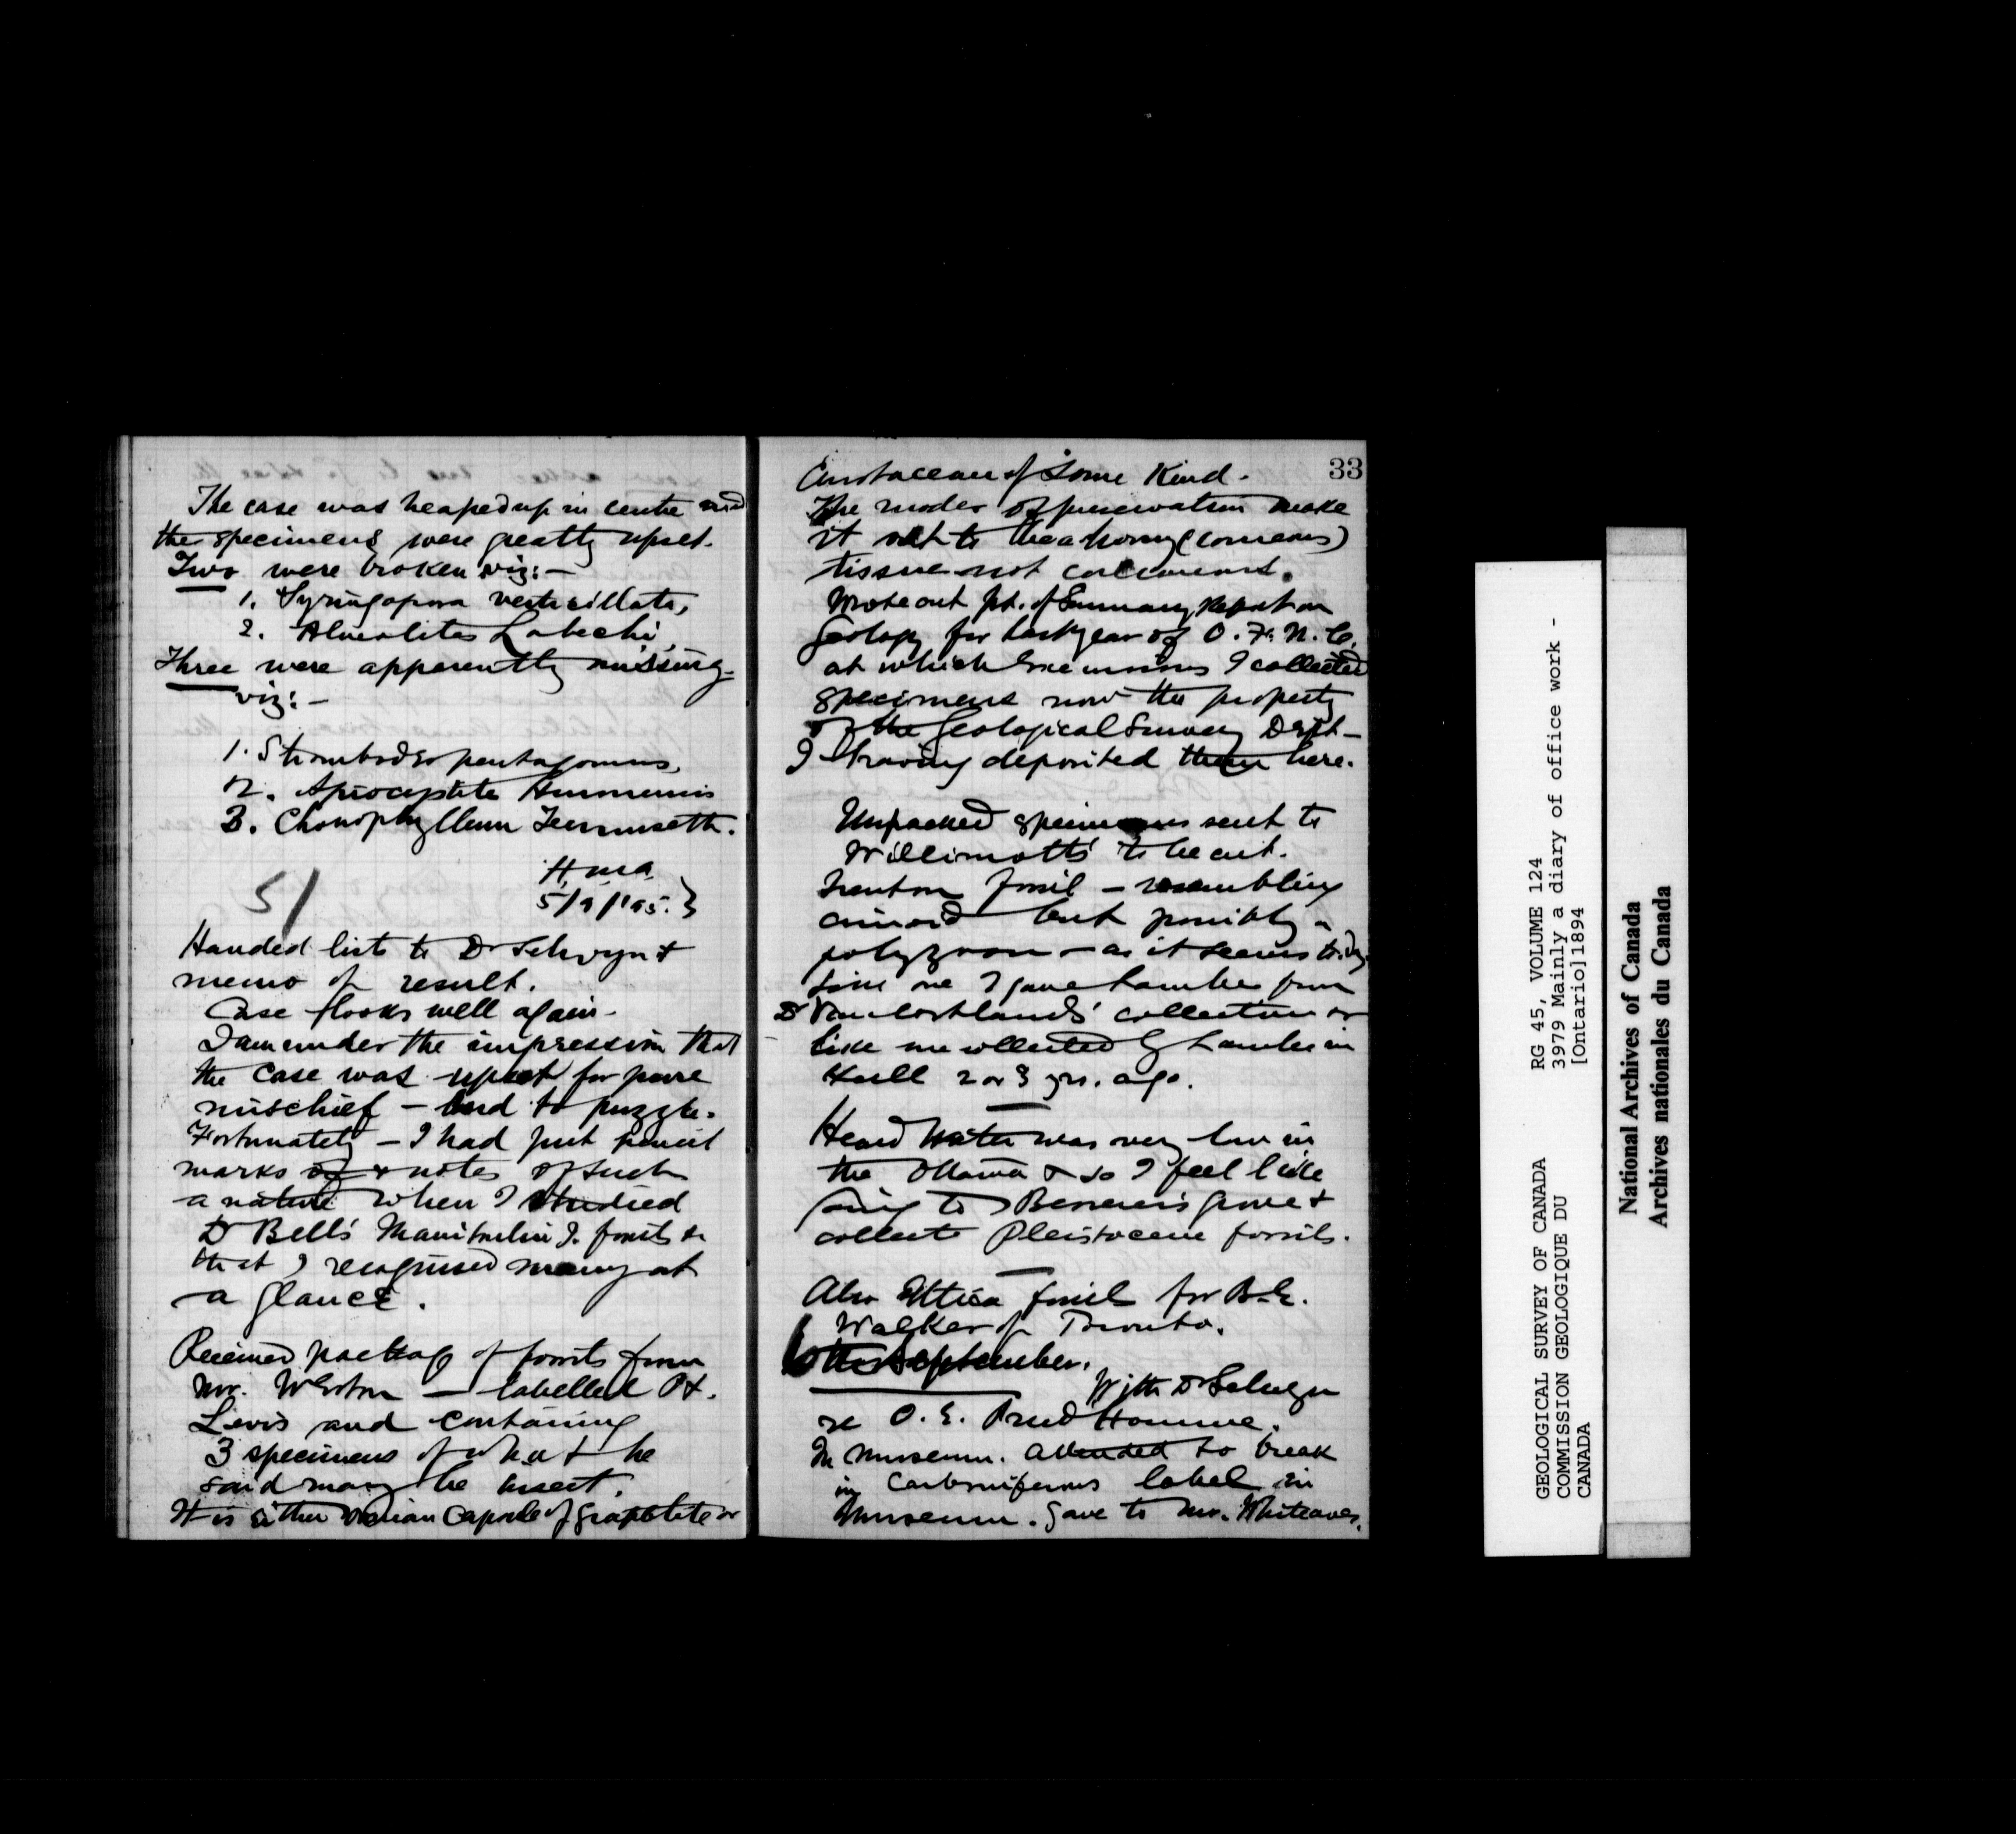 The case was heaped up in centre and
the specimens were greatly upset.
Two were broken viz:—
1. Syringopora verticillata,
2. Alveolites Labechi
Three were apparently missing-
viz:—
1. Strombodes pentagonus,
2. Apiocystites Huronensis
3. Chonophyllum
H.M.A.
5/9/'95.}
5/
Handed list to Dr Selwyn &
memo of result.
Case looks well again-
I am under the impression that
the case was upset for pure
mischief — and to puzzle.
Fortunately — I had put pencil
marks of & notes of such
a nature when I studied
Dr Bell's Manitoulin I. fossils so
that I recognised many at
a glance.
Received package of fossils from
Mr. Weston — labelled Pt.
Levis and containing
3 specimens of what he
said may be insect.
It is either ovarian capsule of graptolite or
33
Crustacean of some kind.
The modes of preservation make
it out to be a horny (corneous)
tissue not calcareous.
Wrote out pt. of Summary Report on
Geology for last year of O.F.N.C.
at which excursions I collected
specimens now the property
of the Geological Survey Dept—
I having deposited them here.
Unpacked specimens sent to
Willimott's to be cut.
Trenton fossil — resembling
crinoid but possibly a
polyzoon — as it seems to be
like one I gave Lambe from
Dr VanCortland's collection or
like one collected by Lambe in
Hull 2 or 3 yrs. ago.
Heard water was very low in
the Ottawa & so I feel like
going to Besserer's grove &
collect Pleistocene fossils.
Also Utica fossils for B.E.
Walker of Toronto.
6th September.
With Dr Selwyn
re O. E. Prud'Homme.
In museum. attended to break
in Carboniferous label in
Museum. Gave to Mr. Whiteaves.
GEOLOGICAL SURVEY OF CANADA
COMMISSION GEOLOGIQUE DU
CANADA
RG 45, VOLUME 124
3979 Mainly a diary of office work -
[Ontario]1894
National Archives of Canada
Archives nationales du Canada